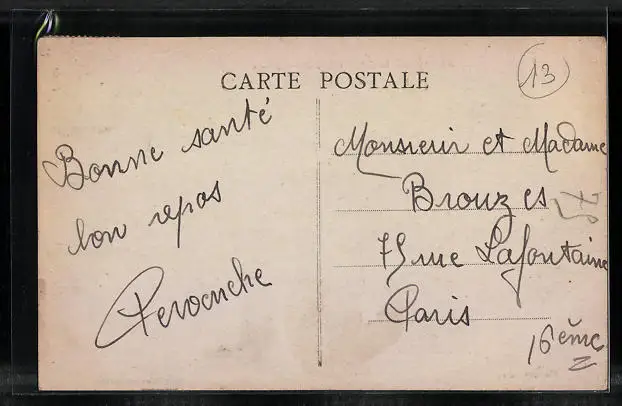 CARTE POSTALE
13
Bonne santé
bon repos
Monsieur et Madame
Brouzes
75 rue Lafontaine
Paris
16ème